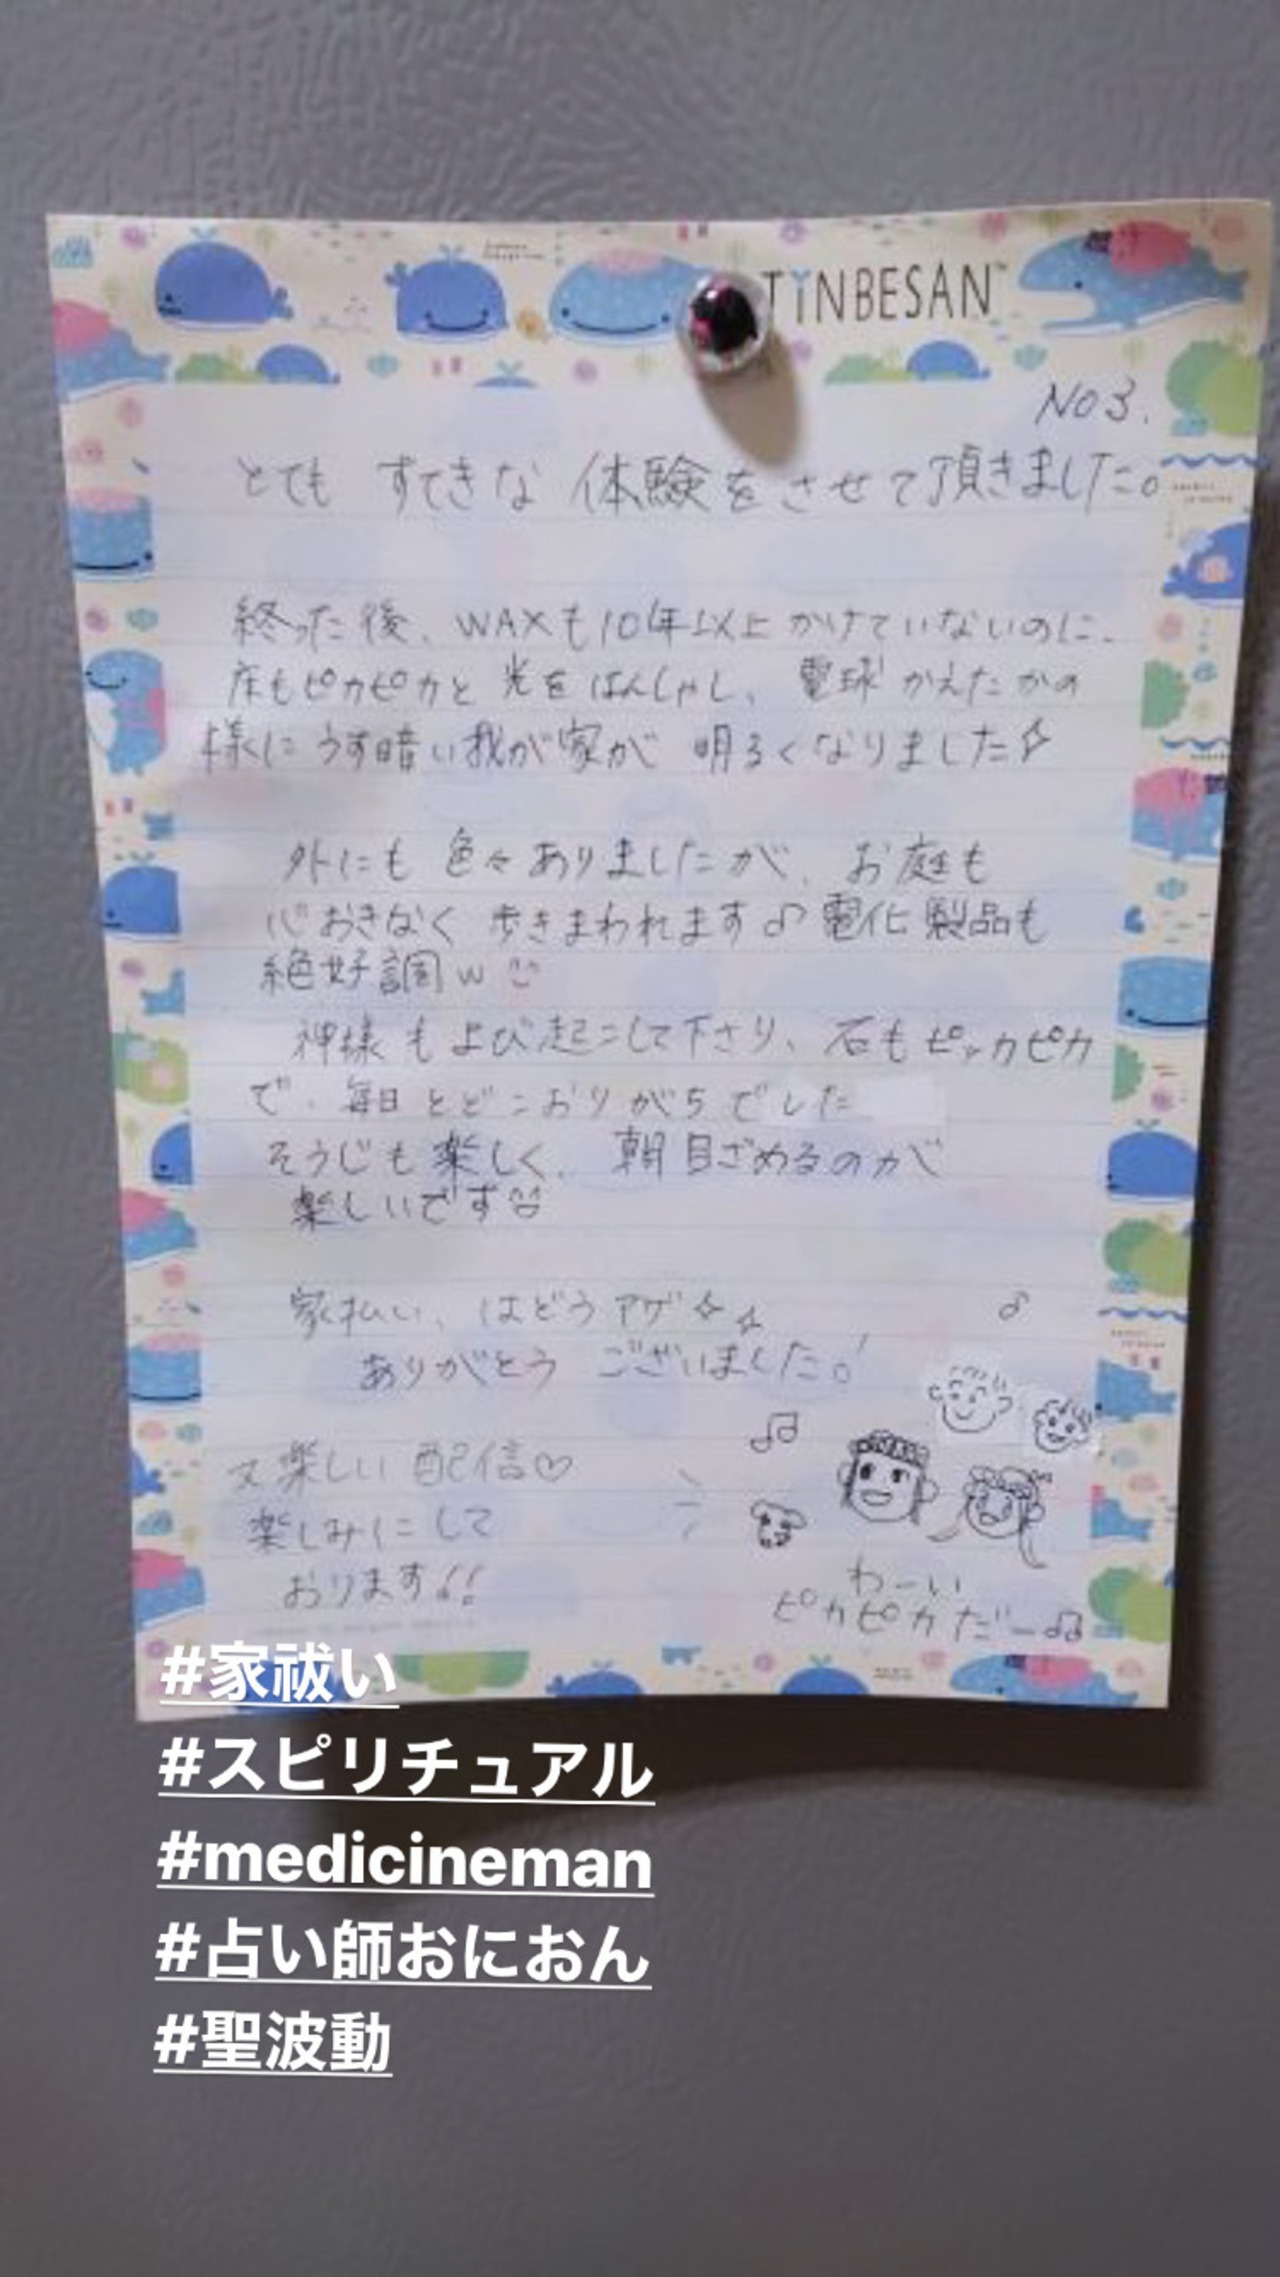 TiNBESAN™
NO3.
とても すてきな 体験をさせて頂きました。
終った後、WAXも10年以上かけていないのに、
床もピカピカと 光をはんしゃし、電球かえたかの
様にうす暗い我が家が 明るくなりました
外にも 色々ありましたが、お庭も
心おきなく 歩きまわれます♪電化製品も
絶好調w
神様もよび起こして下さり、石もピッカピカ
で、毎日とどこおりがちでした
そうじも楽しく、朝目ざめるのが
楽しいです
家払い、はどうアゲ
ありがとう ございました。!
又楽しい配信♡
楽しみにして
おります!!
わーい
ピカピカだー♫
#家祓い
#スピリチュアル
#medicineman
#占い師おにおん
#聖波動